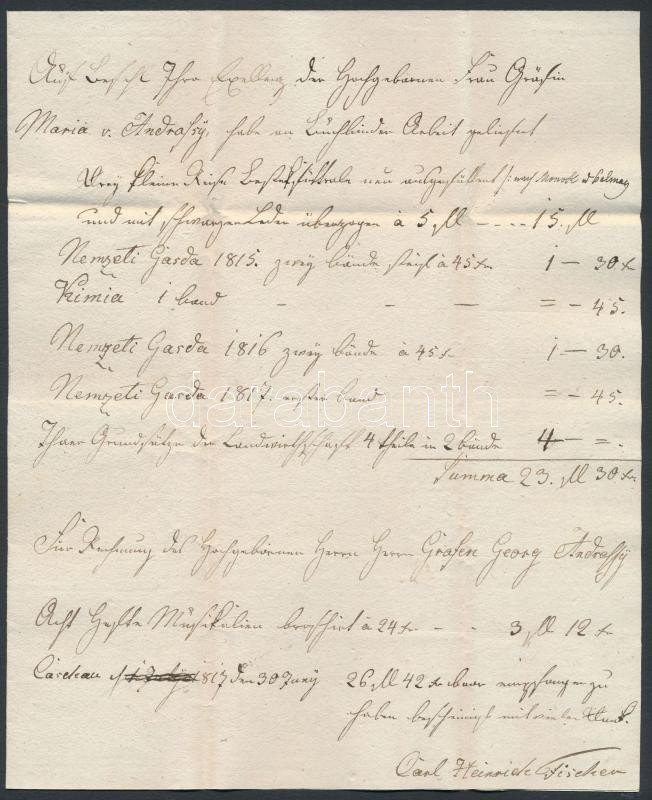 Auf Befehl Ihro Exellenz der Hochgebornen Frau Gräfin
Maria v. Andraßÿ, habe an Buchbinder Arbeit geliefert
Dreÿ kleine neu ausgefüttert
und mit schwarzen Leder überzogen à 5 fl - - - - 15. fl
Nemzeti Gasda 1815. zweÿ bände à 45 x. 1 — 30 x
Kimia 1 band — — — = — 45.
Nemzeti Gasda 1816 zweÿ bände à 45 x 1 — 30.
Nemzeti Gasda 1817. erster band = — 45.
Thaer Grundsätze der Landwirthschaft 4 theile in 2 bände 4 — = .
Summa 23. fl 30 x.
Für Rechnung des Hochgebornen Herrn Herrn Grafen Georg Andraßÿ
Acht Hefte Musikalien broschirt à 24 x — - 3 fl 12 x
Caschau 1817 den 30 Junÿ 26 fl 42 x baar empfangen zu
haben bescheinigt mit vielen Dank.
Carl Heinrich Fischer
darabanth